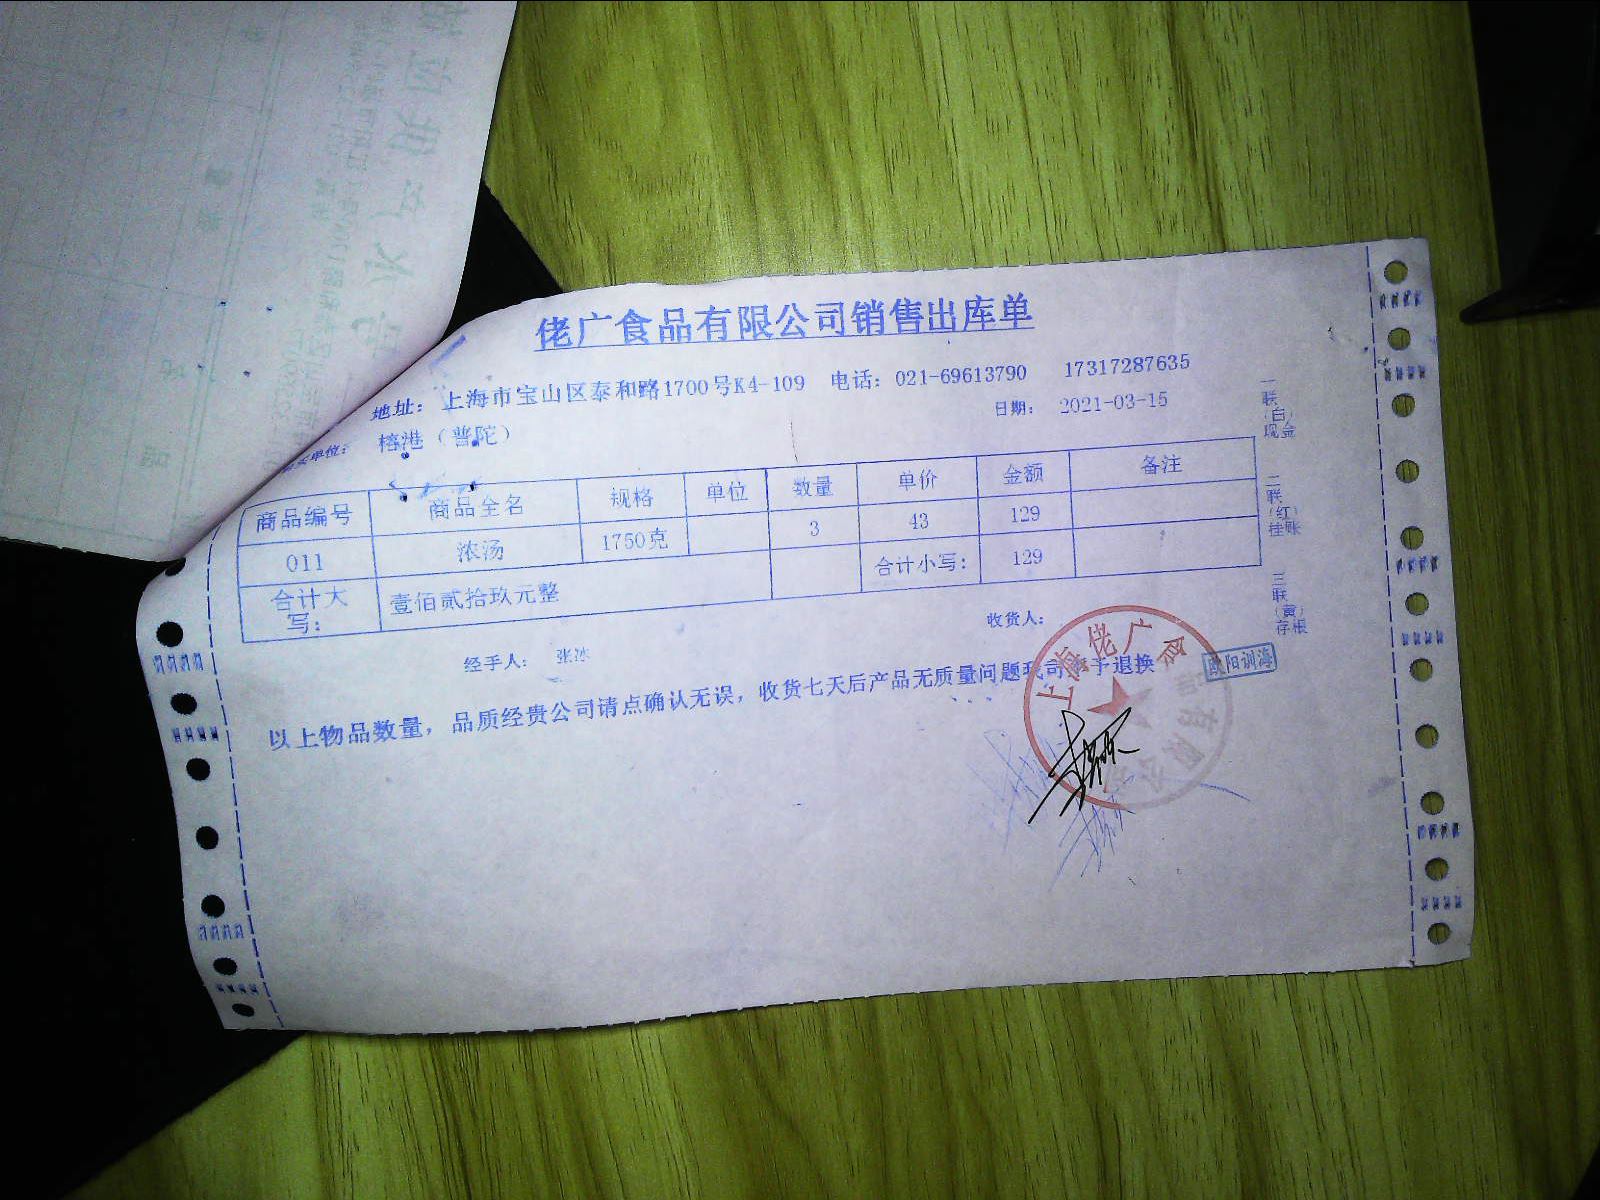 佬广食品有限公司销售出库单
地址: 上海市宝山区泰和路1700号K4-109 电话: 021-69613790 17317287635
单位: 榕港(普陀) 日期: 2021-03-15
商品编号 商品全名 规格 单位 数量 单价 金额 备注
011 浓汤 1750克 3 43 129
合计大写: 壹佰贰拾玖元整 合计小写: 129
经手人: 张冰 收货人:
以上物品数量,品质经贵公司请点确认无误,收货七天后产品无质量问题我司不予退换
一联(白)现金
二联(红)挂账
三联(黄)存根
上海佬广食品有限公司
欧阳训海